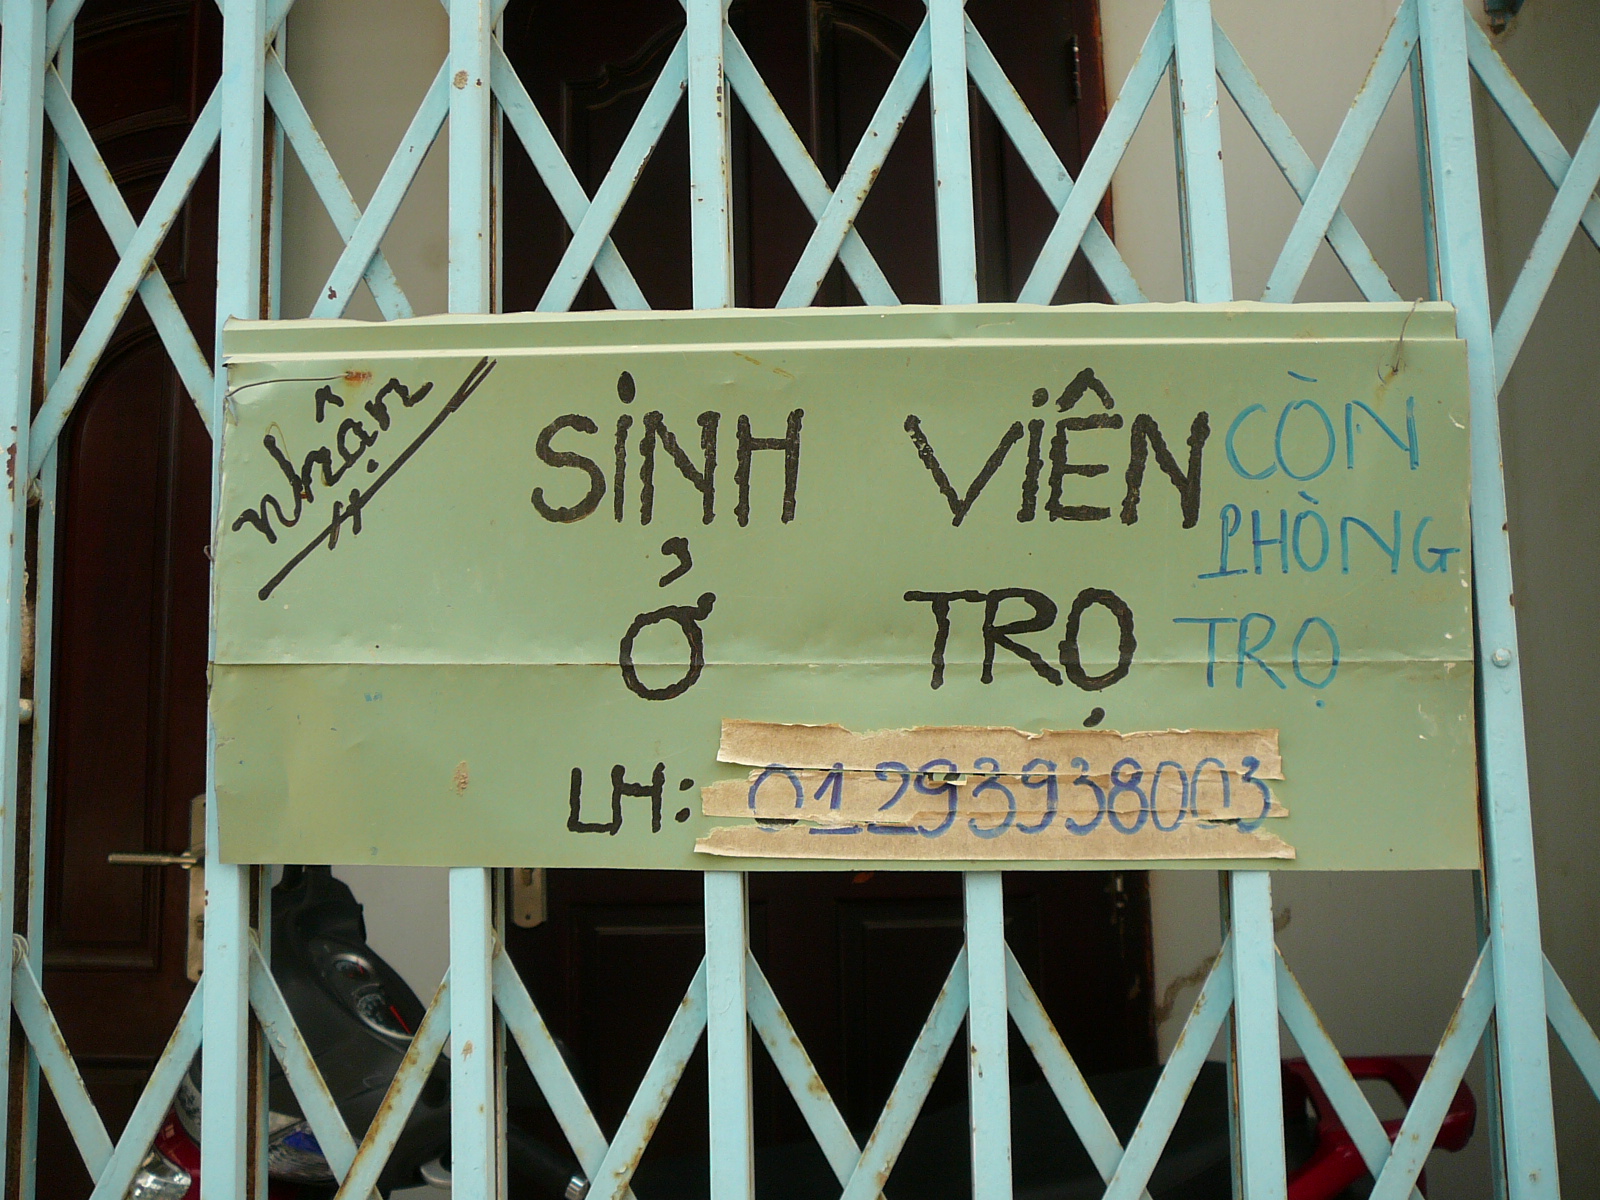 Nhận
SINH VIÊN
Ở TRỌ
CÒN
PHÒNG
TRỌ
LH: 01293938003